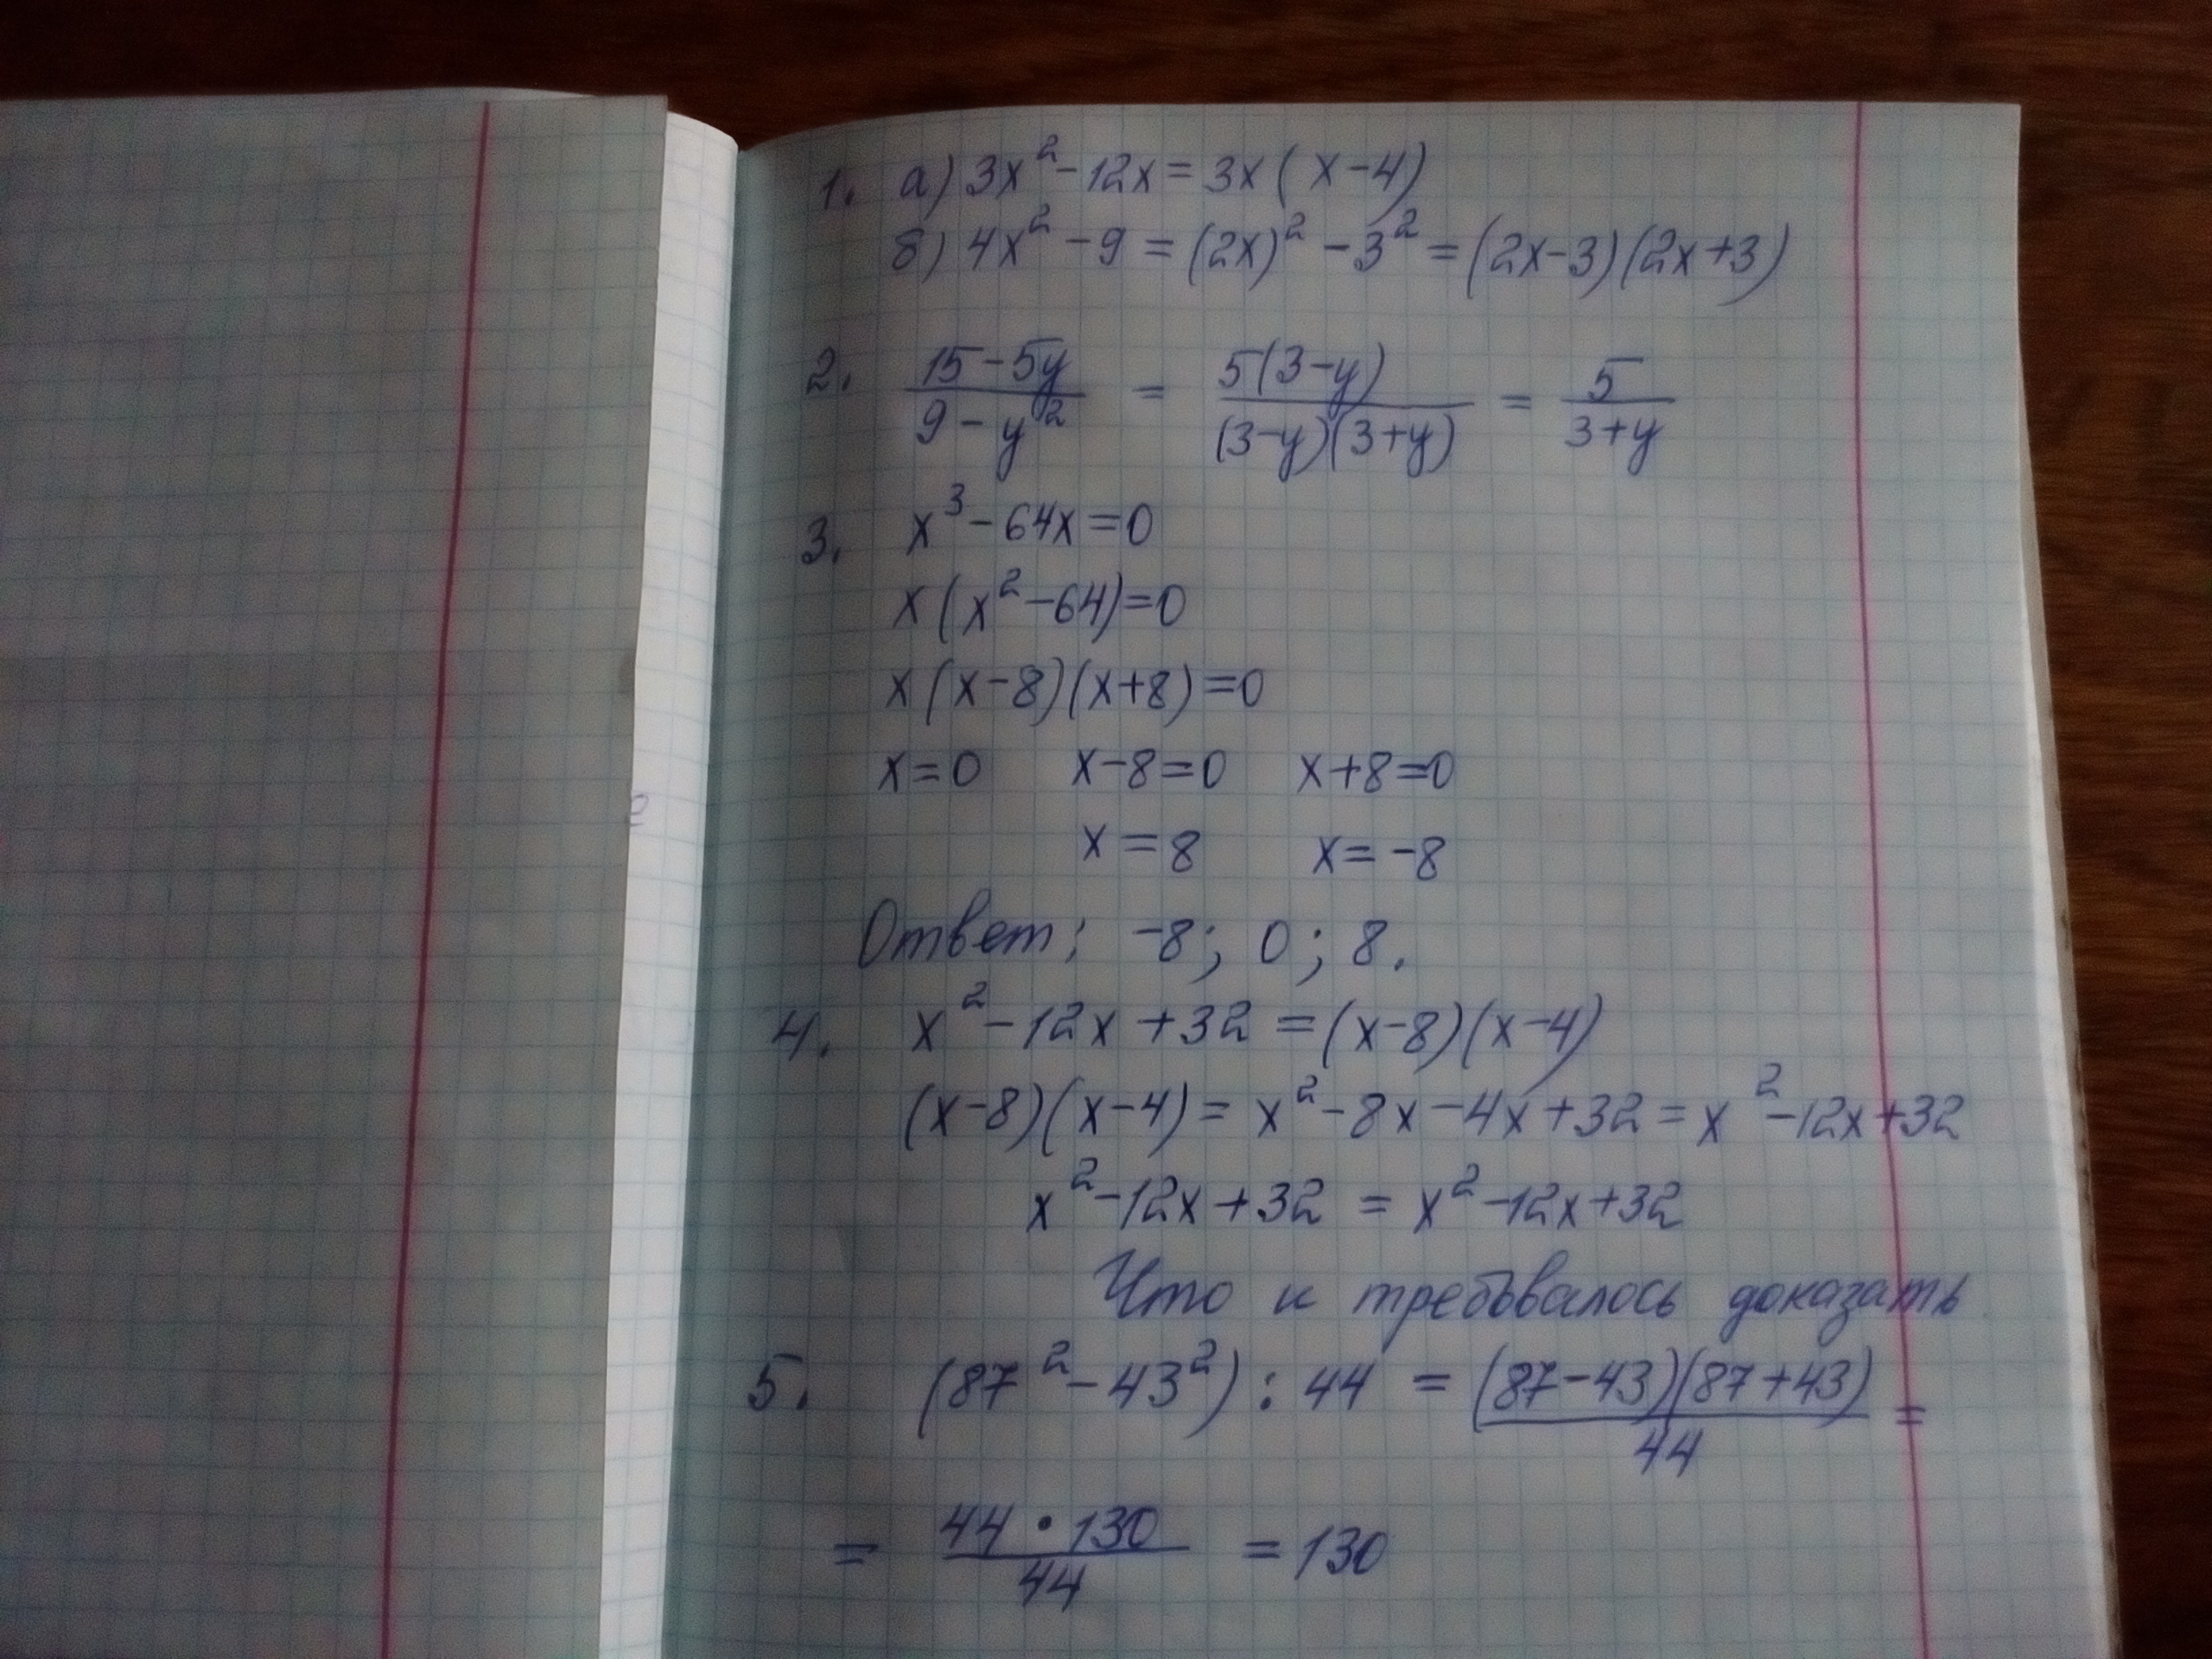 1. а) 3x² - 12x = 3x (x - 4)
б) 4x² - 9 = (2x)² - 3² = (2x-3)(2x+3)
2. (15-5y)/(9-y²) = 5(3-y)/((3-y)(3+y)) = 5/(3+y)
3. x³ - 64x = 0
x(x² - 64) = 0
x(x-8)(x+8) = 0
x = 0 x-8=0 x+8=0
x = 8 x = -8
Ответ: -8; 0; 8.
4. x² - 12x + 32 = (x-8)(x-4)
(x-8)(x-4) = x² - 8x - 4x + 32 = x² - 12x + 32
x² - 12x + 32 = x² - 12x + 32
Что и требывалось доказать
5. (87² - 43²) : 44 = (87-43)(87+43)/44 =
= 44 · 130/44 = 130